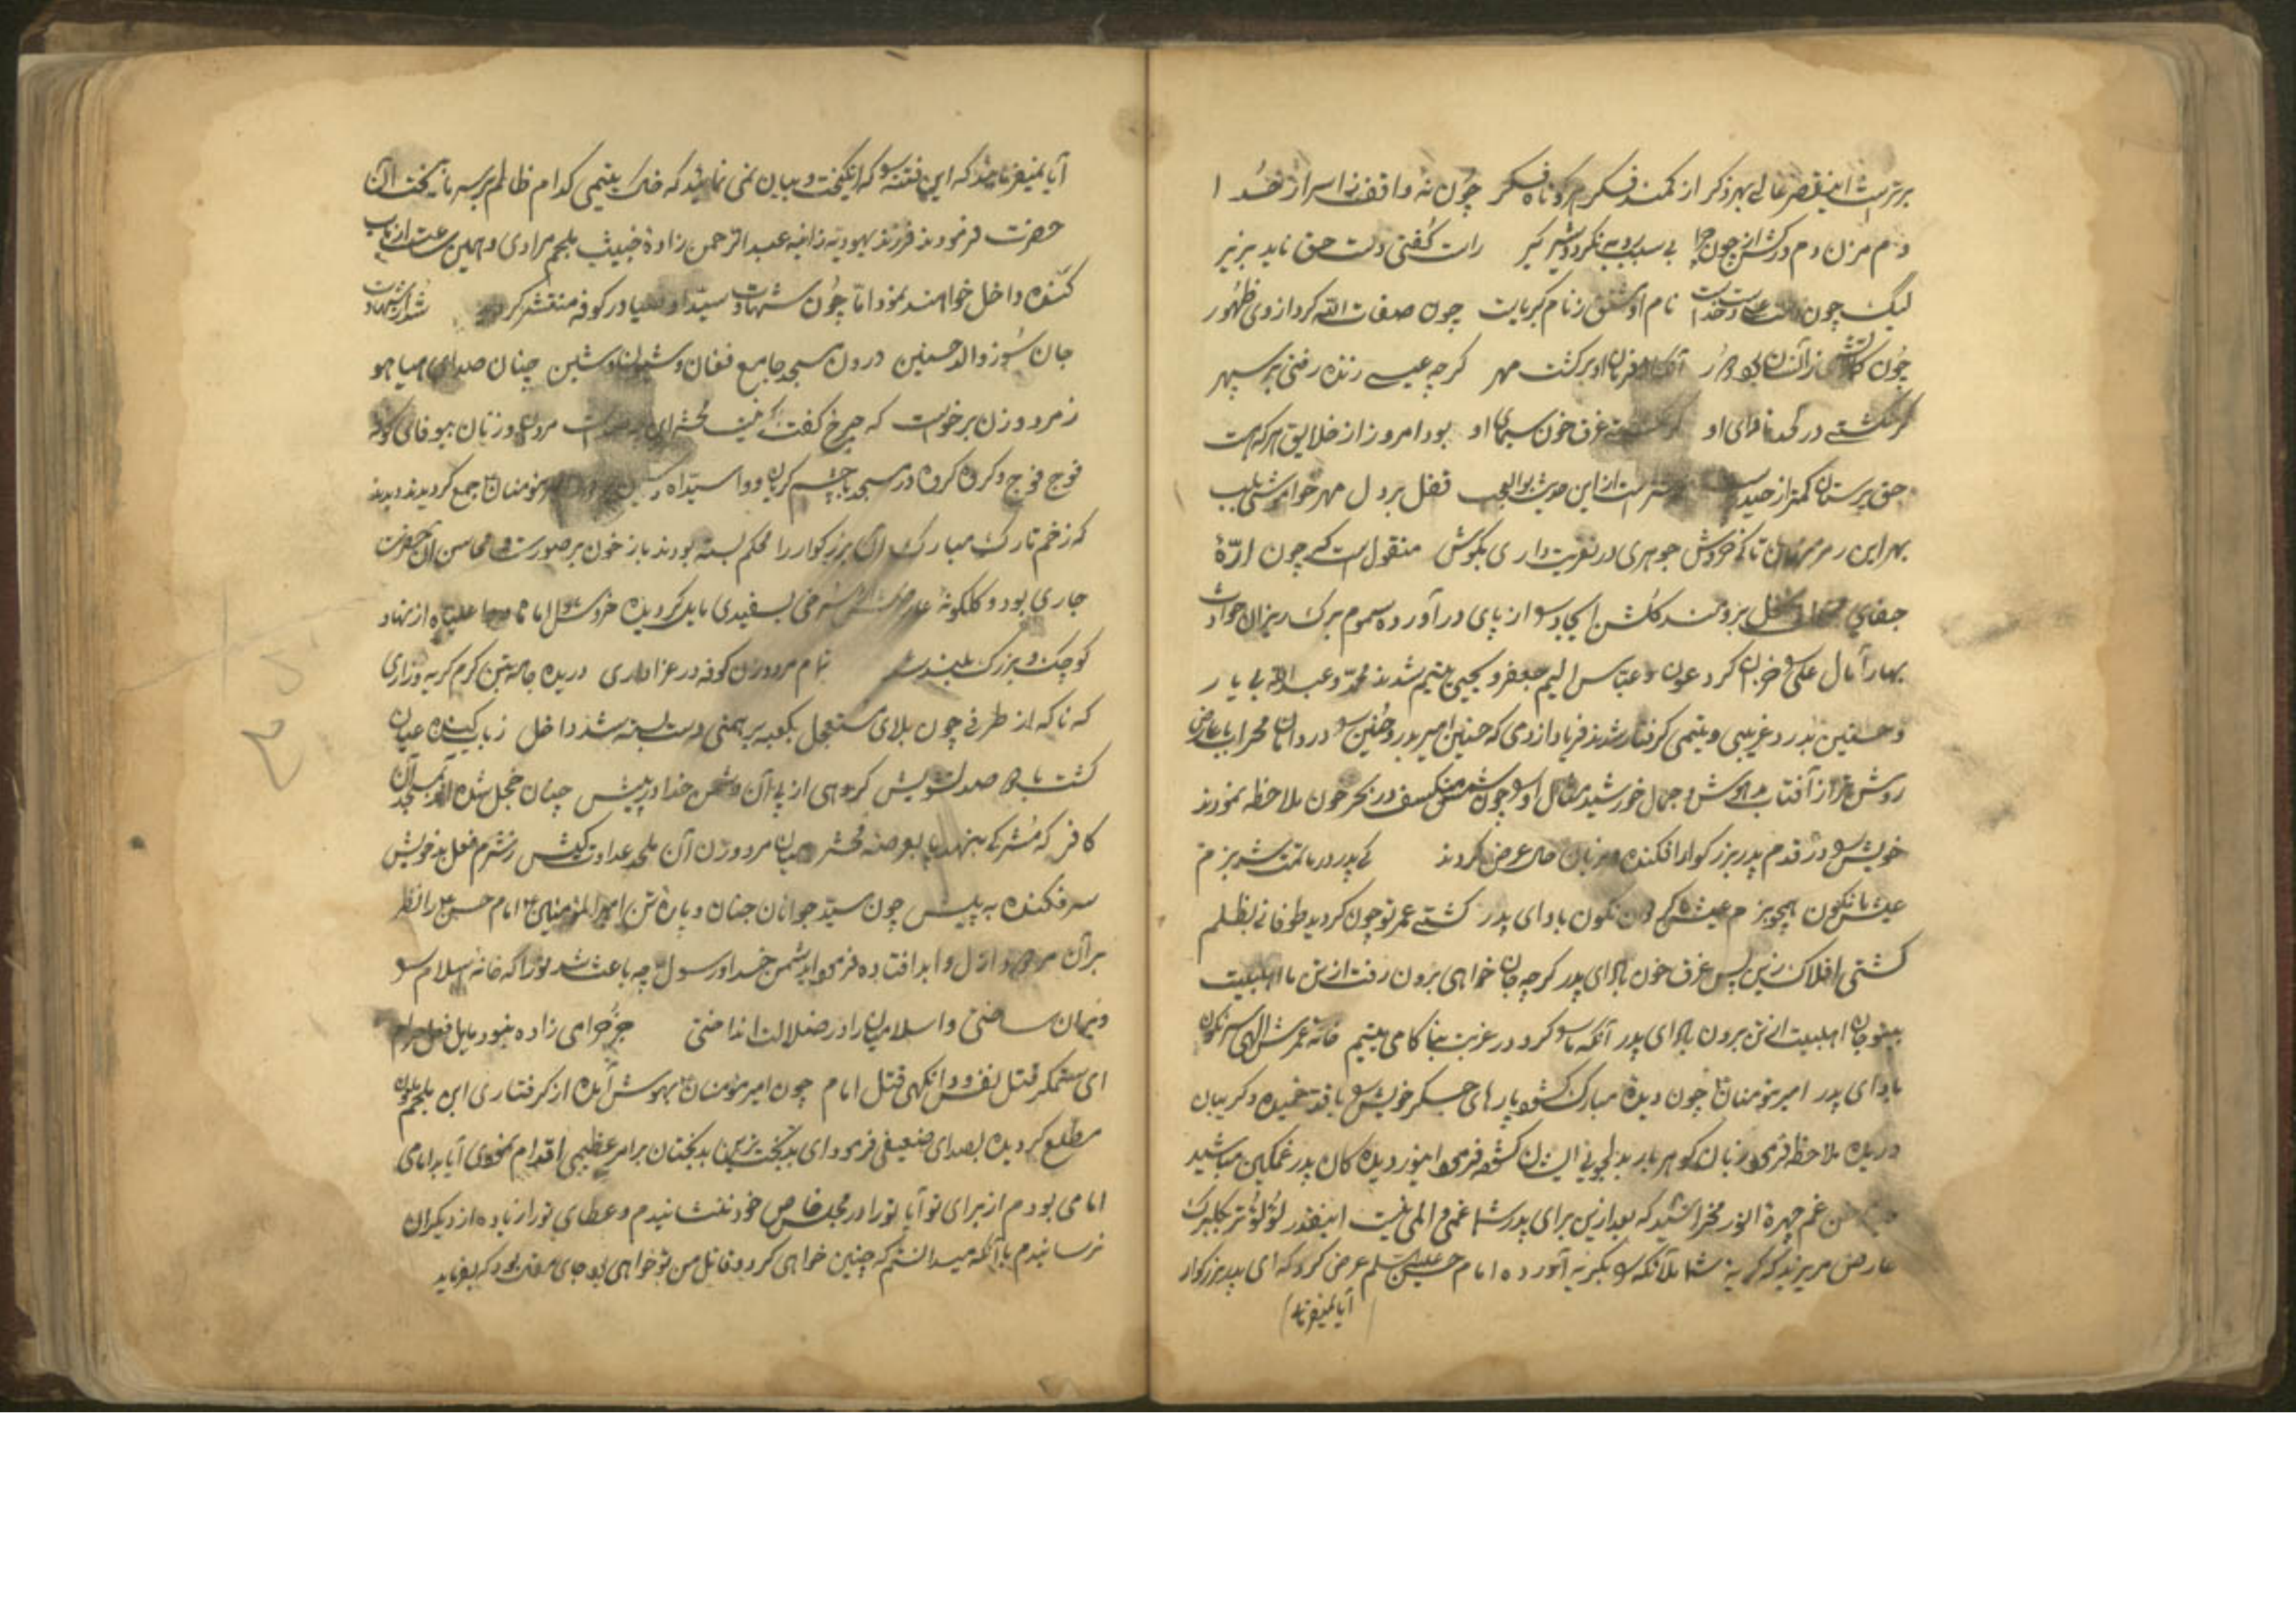 برترست این قصر عالی بهر ذکر از کمند فکرم کوتاه فکر چون نه واقف ز اسرار خدا
دم مزن دم درکش از چون چرا بی سبب روبه نگردد شیر گیر راست گفتی دست حق ناید بزیر
لیک چون دست خدا نام او مشتق ز نام کبریاست چون صفات الله کرد از وی ظهور
چون آنکه از فرمان او برگشت مهر گرچه عیسی زنده رفتی بر سپهر
در غرق خون سیمای او بود امروز از خلایق هر که هست
حق پرستان کمتر از حیدر ازین حدیث بوالعجب قفل بر دل مهر خواموشی بلب
بهر این تا کی خروش جوهری در تعزیت داری بکوش منقول است که چون ارّهٔ
جفای نخل برومند گلشن ایجاد را از پای در آورده سموم برگ ریزان حوادث
بهار آمال علی را خزان کرد عون و عباس الیم جعفر و یحیی یتیم شدند محمد و عبدالله بی یار
و حسنین بدرد غریبی و یتیمی گرفتار شدند فریاد از دمی که حسنین امیر بدر و حنین را در دامان محراب با عارض
روشن تر از آفتاب مدهوش و جمال خورشید مثال او را چون شمس منکسف در بحر خون ملاحظه نمودند
خویش را در قدم پدر بزرگوار افکنده و بزبان حال عرض کردند کی پدر در ماتمت شد بزم
عیش ما نگون همچو بزم عیش ما گردون نگون باد ای پدر کشتی عمر تو چون گردید طوفانی بظلم
کشتی افلاک زین پس غرق خون باد ای پدر گرچه جان خواهی برون رفت از تن ما اهلبیت
بیتو جان اهلبیت از تن برون باد ای پدر آنکه ما را کرد در غربت بناکامی یتیم خانه عمرش الهی سرنگون
باد ای پدر امیر مؤمنان چون دیده مبارک گشود پارهای جگر خویش را با قد خمیده و گریبان
دریده ملاحظه فرمود زبان گوهربار بدلجوئی ایشان گشوده فرمود ای نور دیده کان پدر غمگین مباشید
غم چهرهٔ انور مخراشید که بعد ازین برای پدر شما غمی و المی نیست اینقدر لؤلؤ تر بگلبرگ
عارض مریزید که گریه شما ملائکه را بگریه آورده امام حسین علیه السلم عرض کرد که ای پدر بزرگوار
آیا نمیفرمائید
آیا نمیفرمائید که این فتنه را که انگیخت و بیان نمی نمائید که خاک یتیمی کدام ظالم بر سر ما بیخت آن
حضرت فرمودند فرزند یهودیه زانیه عبدالرحمن زادهٔ خبیث ملجم مرادی و همین ساعت از باب
کنده داخل خواهند نمود اما چون شهادت سید اوصیا در کوفه منتشر گردید شد از شهادت
جان سوز والد حسنین درون مسجد جامع فغان و شیون و شین چنان صدای هیاهو
ز مرد و زن برخواست که چرخ گفت مردان و زنان بیوفائی کوفه
فوج فوج و گروه گروه در مسجد با چشم گریان و وا سیداه مؤمنان جمع گردیدند دیدند
که زخم تارک مبارک آن بزرگوار را محکم بسته بودند باز خون بر صورت و محاسن آن حضرت
جاری بود و گلگونه عارض سرخی بسفیدی مایل گردیده خروش وا اماماه وا علیاه از نهاد
کوچک و بزرگ بلند شد تمام مرد و زن کوفه در عزاداری دریده جامه بتن گرم گریه و زاری
که ناگه از طرفی چون بلای مستعجل بکعبه برهمنی دست بسته شد داخل ز باب کینده عیان
گشت با صد تشویش گروهی از پی آن دشمن خدا در پیش چنان خجل شده اندر میان آن
کافر که مشرکی بنهد پا بعرصه محشر میان مرد و زن آن ملحد عداوت کیش ز شرم فعل بد خویش
سر فکنده به پیش چون سید جوانان جنان و پارهٔ تن امیر المؤمنین امام حسن را نظر
بر آن مردود ازل و ابد افتاده فرمود ای دشمن خدا و رسول چه باعث شد تو را که خانه اسلام را
ویران ساختی و اسلامیان را در ضلالت انداختی جز حرامی زاده نبود مایل فعل حرام
ای ستمگر قتل نفس و وانگهی قتل امام چون امیر مؤمنان بهوش آمده از گرفتاری ابن ملجم ملعون
مطلع گردیده بصدای ضعیفی فرمود ای بدبخت ترین بدبختان بر امر عظیمی اقدام نمودی آیا بد امامی
امامی بودم از برای تو آیا تو را در مجلس خاص خود ننشانیدم و عطای تو را زیاده از دیگران
نرسانیدم با آنکه میدانستم که چنین خواهی کرد و قاتل من تو خواهی بود جای